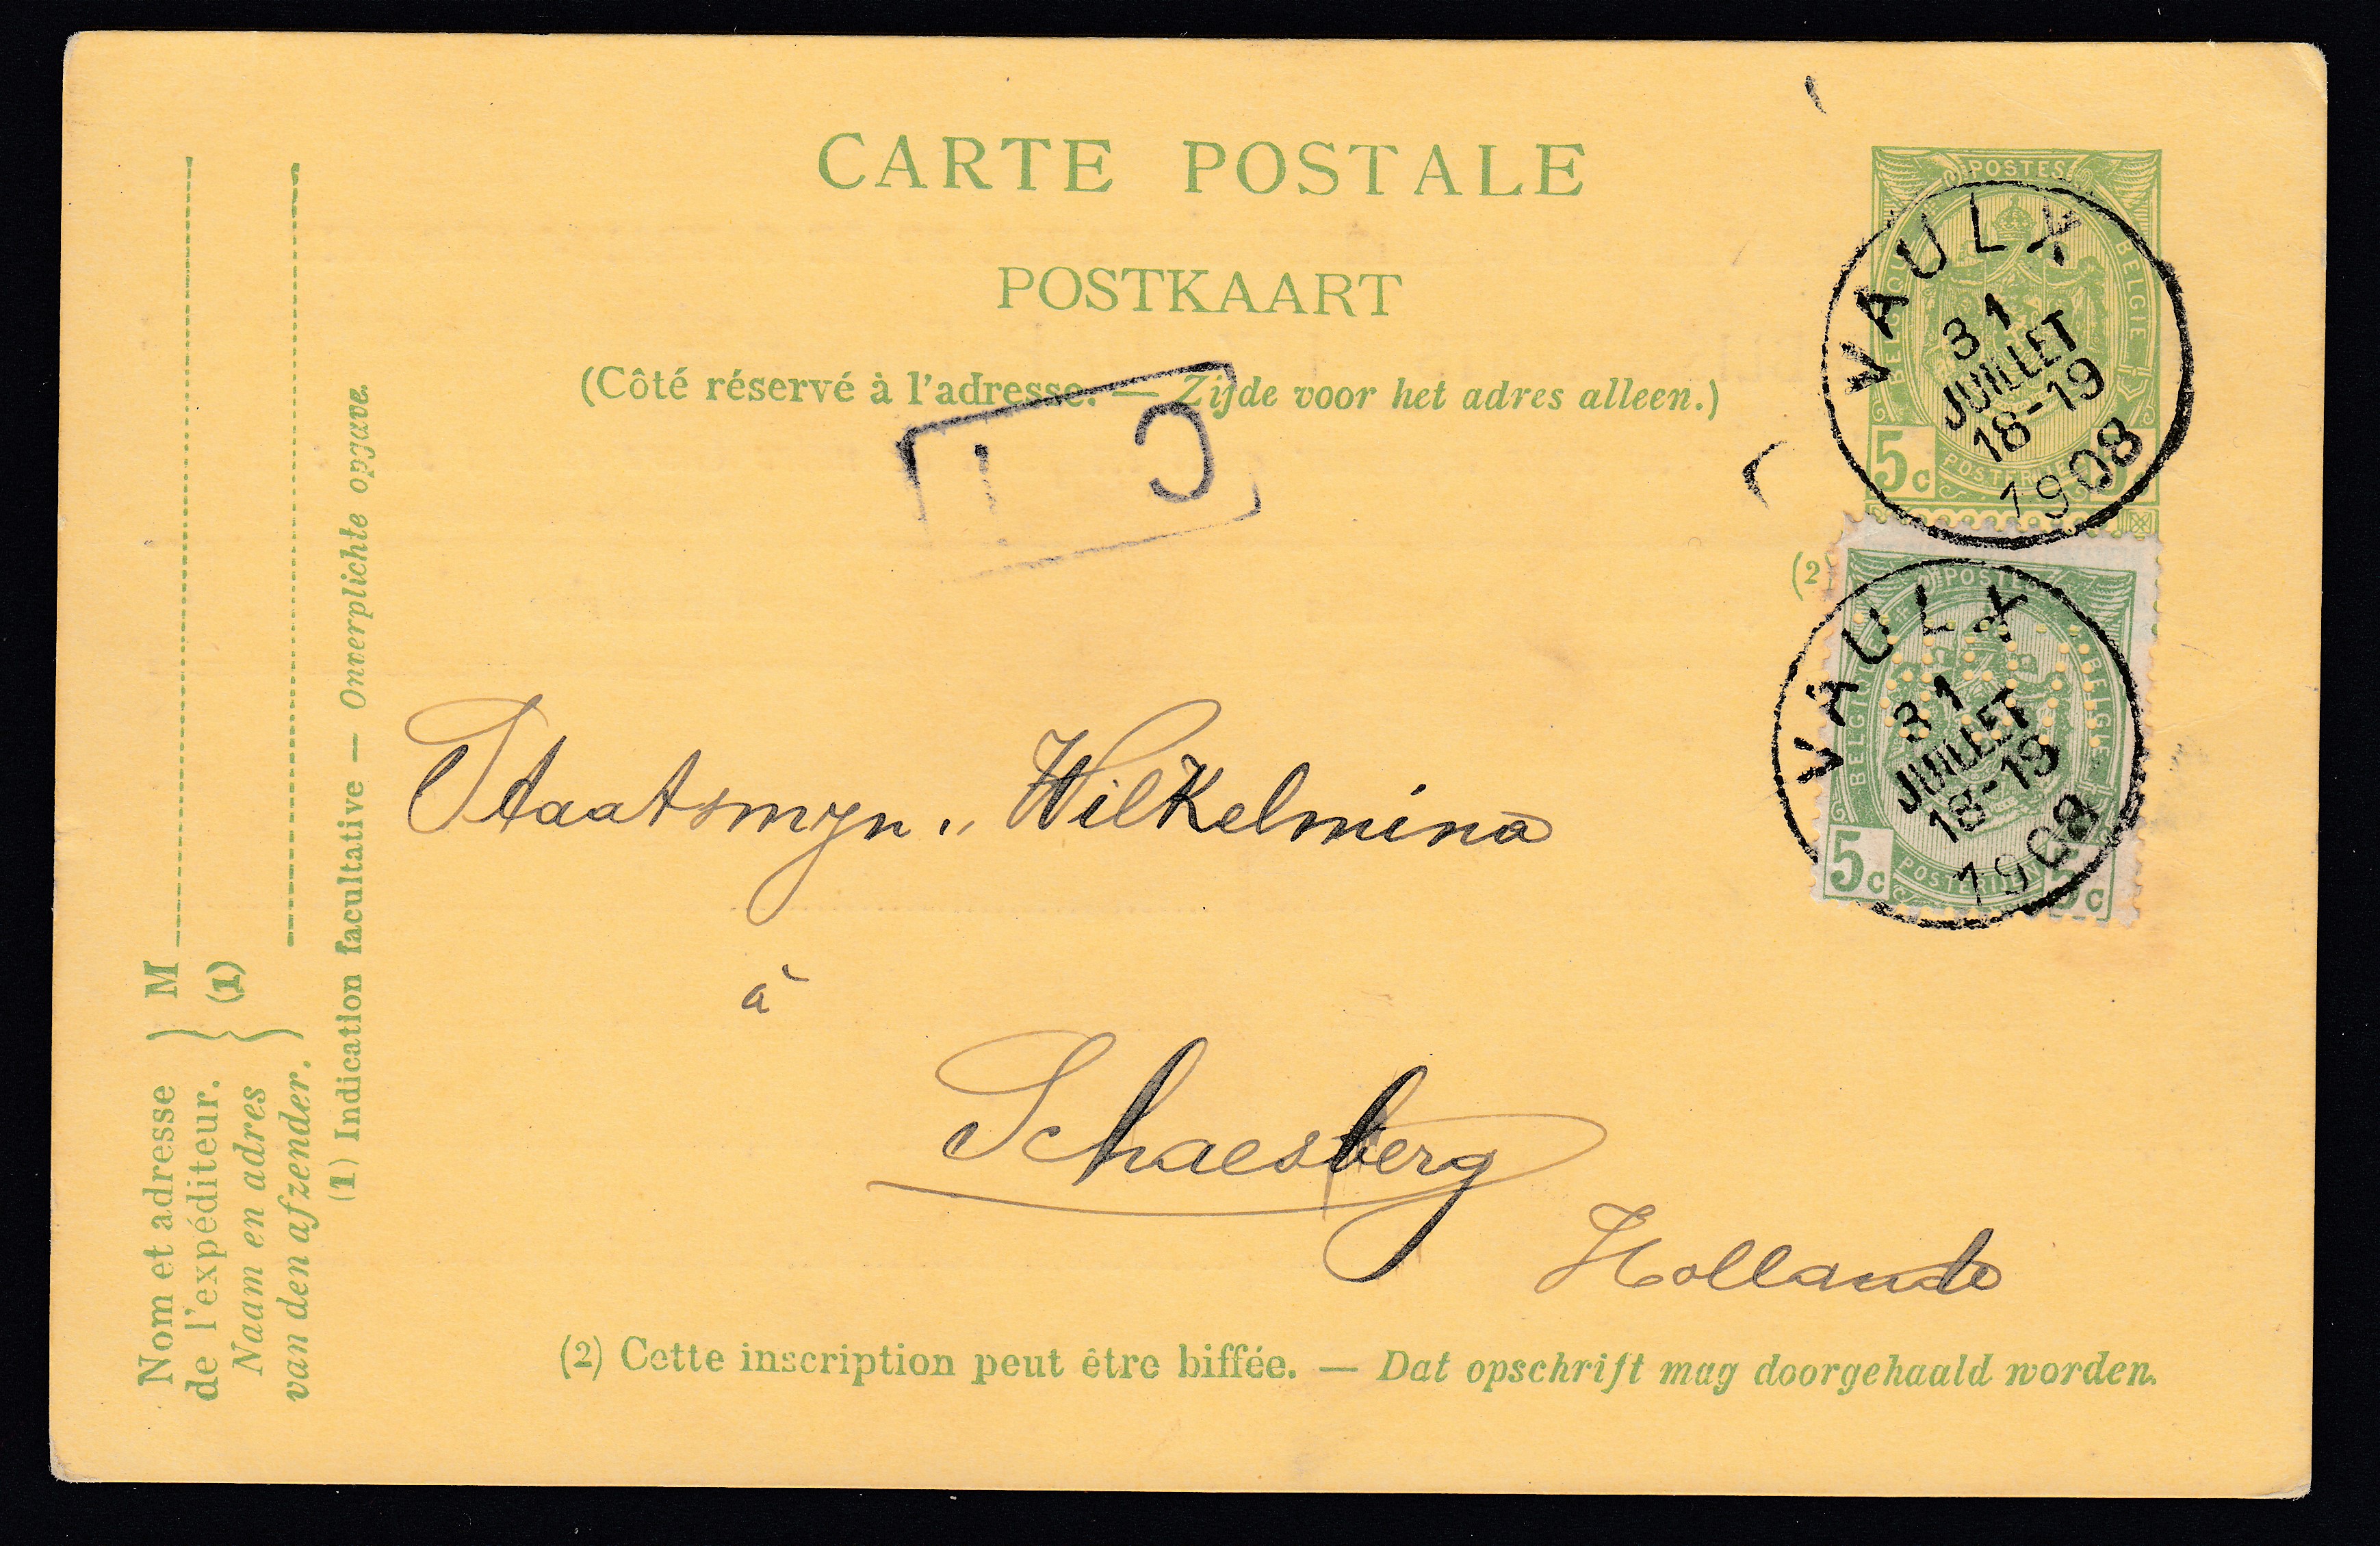 CARTE POSTALE
POSTKAART
(Côté réservé à l'adresse. — Zijde voor het adres alleen.)
C I
POSTES
BELGIE
5c
VAULX
31
JUILLET
18-19
1908
(2)
POSTES
BELGIQUE BELGIE
5c 5c
VAULX
31
JUILLET
18-19
1908
Staatsmyn „ Wilkelmina
à
Schaesberg
Hollande
(2) Cette inscription peut être biffée. — Dat opschrift mag doorgehaald worden.
Nom et adresse
de l'expéditeur.
Naam en adres
van den afzender.
M
(1)
(1) Indication facultative — Onverplichte opgave.